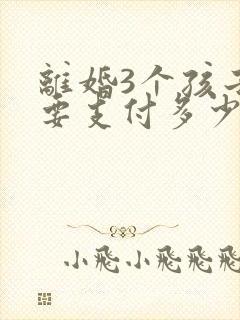 離婚3个孩子
要支付多少
小飛小飛飛飛